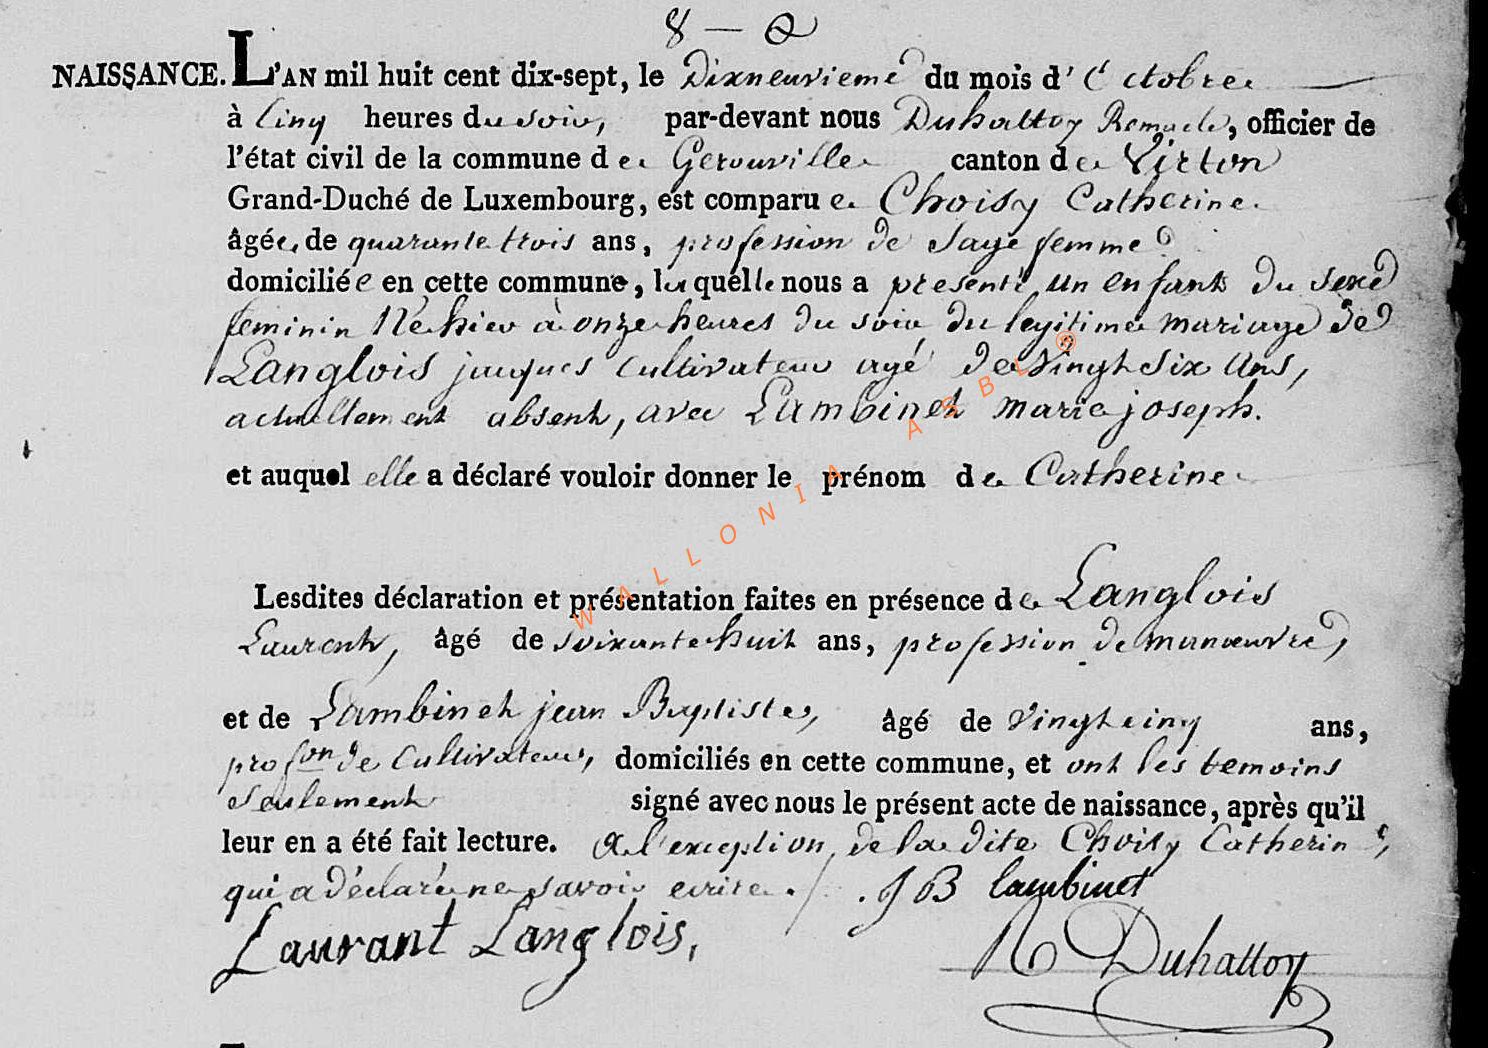 8 — Q
NAISSANCE. L'AN mil huit cent dix-sept, le Dixneuvieme du mois d' Octobre
à Cinq heures du soir, par-devant nous Duhattoy Remacle, officier de
l'état civil de la commune de Gerouville canton de Virton
Grand-Duché de Luxembourg, est comparue Choisy Catherine
âgée, de quarante trois ans, profession de Sage femme
domiciliée en cette commune, laquelle nous a presenté un enfant du sexe
feminin Né hier à onze heures du soir du legitime mariage de
Langlois jacques Cultivateur agé de Vingt Six Ans,
actuellement absent, avec Lambinet marie joseph.
et auquel elle a déclaré vouloir donner le prénom de Catherine
Lesdites déclaration et présentation faites en présence de Langlois
Laurent, âgé de soixante huit ans, profession de manœuvre,
et de Lambinet jean Baptiste, âgé de Vingt cinq ans,
profon de Cultivateur, domiciliés en cette commune, et ont les temoins
Seulement signé avec nous le présent acte de naissance, après qu'il
leur en a été fait lecture. a l'exception, de la dite Choisy Catherine,
qui a déclaré ne savoir ecrire ./. JB lambinet
Laurant Langlois,
R Duhattoy
WALLONIA ASBL ®